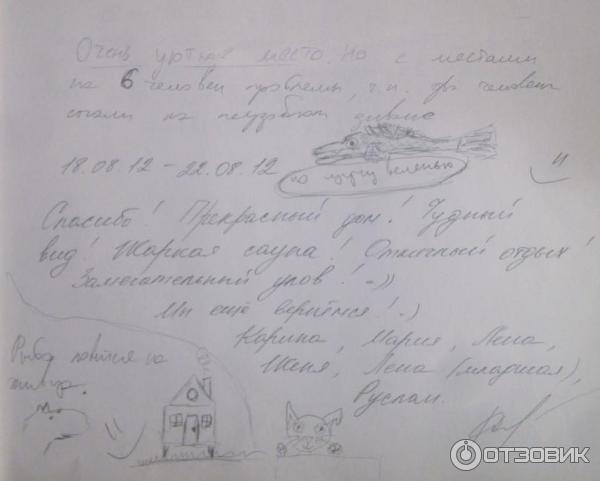 Очень уютное место. Но с местами
на 6 человек проблемы, т.к. два человека
спали на неудобном диване
18.08.12 - 22.08.12
по щучьему веленью
Спасибо! Прекрасный дом! Чудный
вид! Жаркая сауна! Отличный отдых!
Замечательный улов! =))
Мы ещё вернёмся! :)
Карина, Мария, Лена,
Женя, Лена (младшая),
Руслан.
Рыба ловится на
живца.
ОТЗОВИК